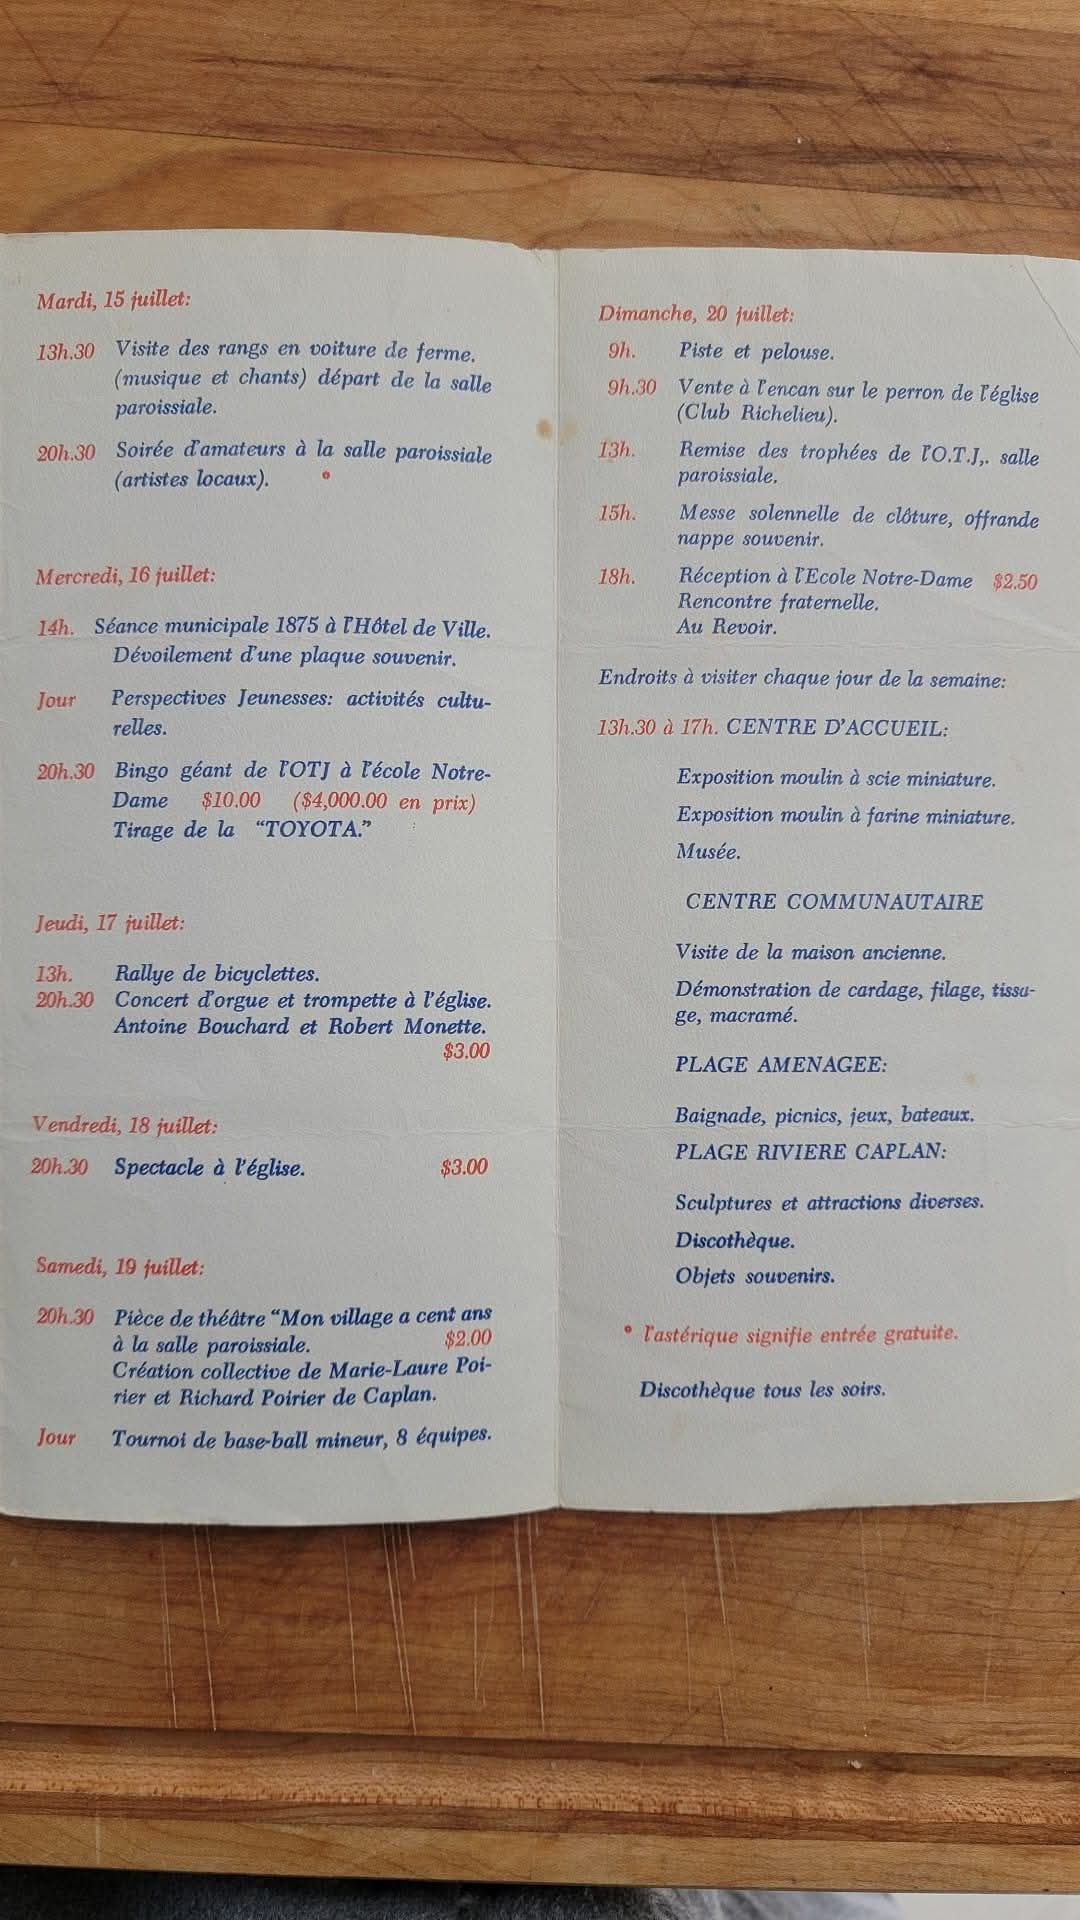 Mardi, 15 juillet:
13h.30 Visite des rangs en voiture de ferme.
(musique et chants) départ de la salle
paroissiale.
20h.30 Soirée d'amateurs à la salle paroissiale
(artistes locaux). *
Mercredi, 16 juillet:
14h. Séance municipale 1875 à l'Hôtel de Ville.
Dévoilement d'une plaque souvenir.
Jour Perspectives Jeunesses: activités cultu-
relles.
20h.30 Bingo géant de l'OTJ à l'école Notre-
Dame $10.00 ($4,000.00 en prix)
Tirage de la "TOYOTA."
Jeudi, 17 juillet:
13h. Rallye de bicyclettes.
20h.30 Concert d'orgue et trompette à l'église.
Antoine Bouchard et Robert Monette.
$3.00
Vendredi, 18 juillet:
20h.30 Spectacle à l'église. $3.00
Samedi, 19 juillet:
20h.30 Pièce de théâtre "Mon village a cent ans
à la salle paroissiale. $2.00
Création collective de Marie-Laure Poi-
rier et Richard Poirier de Caplan.
Jour Tournoi de base-ball mineur, 8 équipes.
Dimanche, 20 juillet:
9h. Piste et pelouse.
9h.30 Vente à l'encan sur le perron de l'église
(Club Richelieu).
13h. Remise des trophées de l'O.T.J,. salle
paroissiale.
15h. Messe solennelle de clôture, offrande
nappe souvenir.
18h. Réception à l'Ecole Notre-Dame $2.50
Rencontre fraternelle.
Au Revoir.
Endroits à visiter chaque jour de la semaine:
13h.30 à 17h. CENTRE D'ACCUEIL:
Exposition moulin à scie miniature.
Exposition moulin à farine miniature.
Musée.
CENTRE COMMUNAUTAIRE
Visite de la maison ancienne.
Démonstration de cardage, filage, tissa-
ge, macramé.
PLAGE AMENAGEE:
Baignade, picnics, jeux, bateaux.
PLAGE RIVIERE CAPLAN:
Sculptures et attractions diverses.
Discothèque.
Objets souvenirs.
* l'astérique signifie entrée gratuite.
Discothèque tous les soirs.